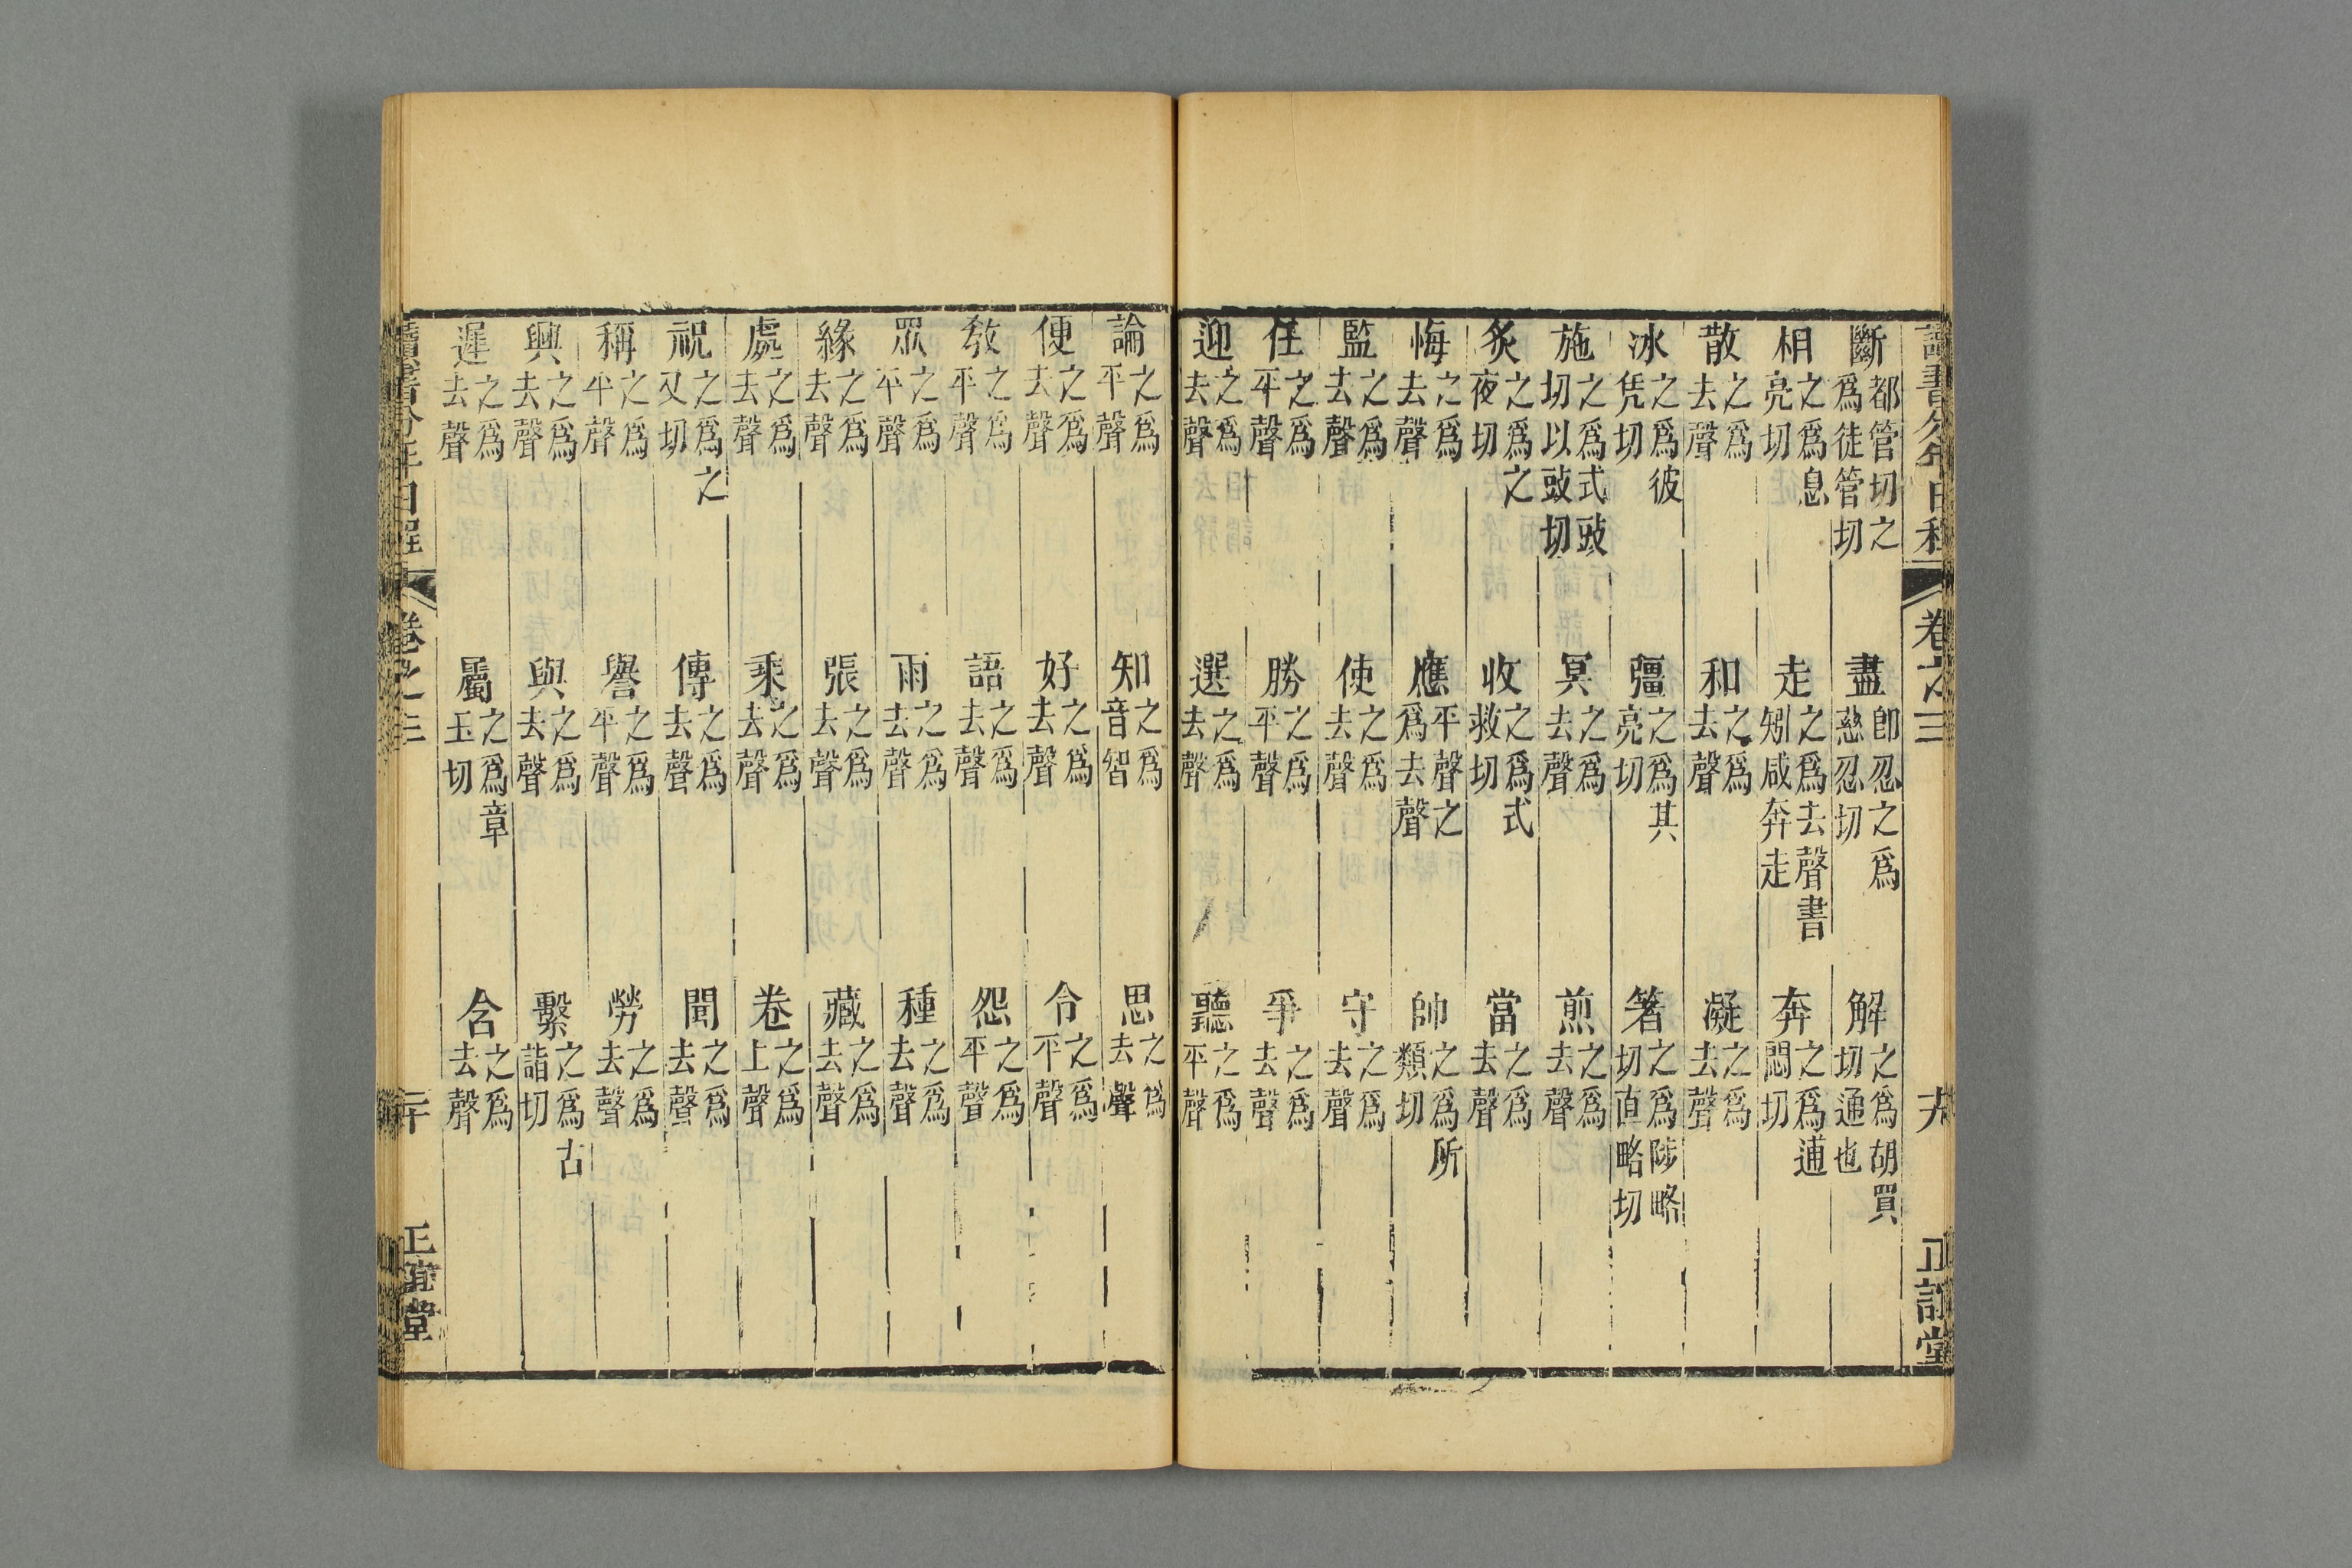 讀書分年日程 卷之三 十九 正誼堂
斷都管切之爲徒管切 盡卽忍之爲慈忍切 解之爲胡買切通也
相之爲息亮切 走之爲去聲書矧咸奔走 奔之爲逋悶切
散之爲去聲 和之爲去聲 凝之爲去聲
冰之爲彼凭切 彊之爲其亮切 箸之爲陟略切直略切
施之爲式豉切以豉切 冥之爲去聲 煎之爲去聲
炙之爲之夜切 收之爲式救切 當之爲去聲
悔之爲去聲 應平聲之爲去聲 帥之爲所類切
監之爲去聲 使之爲去聲 守之爲去聲
任之爲平聲 勝之爲平聲 爭之爲去聲
迎之爲去聲 選之爲去聲 聽之爲平聲
論之爲平聲 知之爲音智 思之爲去聲
便之爲去聲 好之爲去聲 令之爲平聲
敎之爲平聲 語之爲去聲 怨之爲平聲
眾之爲平聲 雨之爲去聲 種之爲去聲
緣之爲去聲 張之爲去聲 藏之爲去聲
處之爲去聲 乘之爲去聲 卷之爲上聲
祝之爲之又切 傳之爲去聲 聞之爲去聲
稱之爲平聲 譽之爲平聲 勞之爲去聲
興之爲去聲 與之爲去聲 繫之爲古詣切
遲之爲去聲 屬之爲章玉切 含之爲去聲
讀書分年日程 卷之三 二十 正誼堂